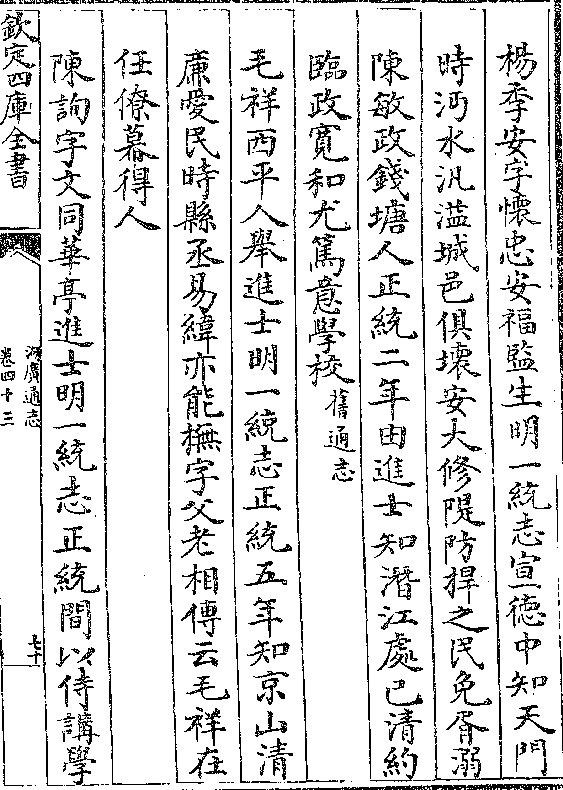 楊季安字懷忠安福監生明一統志宣德中知天門
時沔水汎溢城邑俱壞安大修隄防捍之民免胥溺
陳敏政錢塘人正統二年由進士知潛江處已清約
臨政寬和尤篤意學校舊通志
毛祥西平人舉進士明一統志正統五年知京山清
亷愛民時縣丞易緯亦能撫字父老相傳云毛祥在
任僚幕得人
陳詢字文同華亭進士明一統志正統間以侍講學
欽定四庫全書
湖廣通志
卷四十三
七十